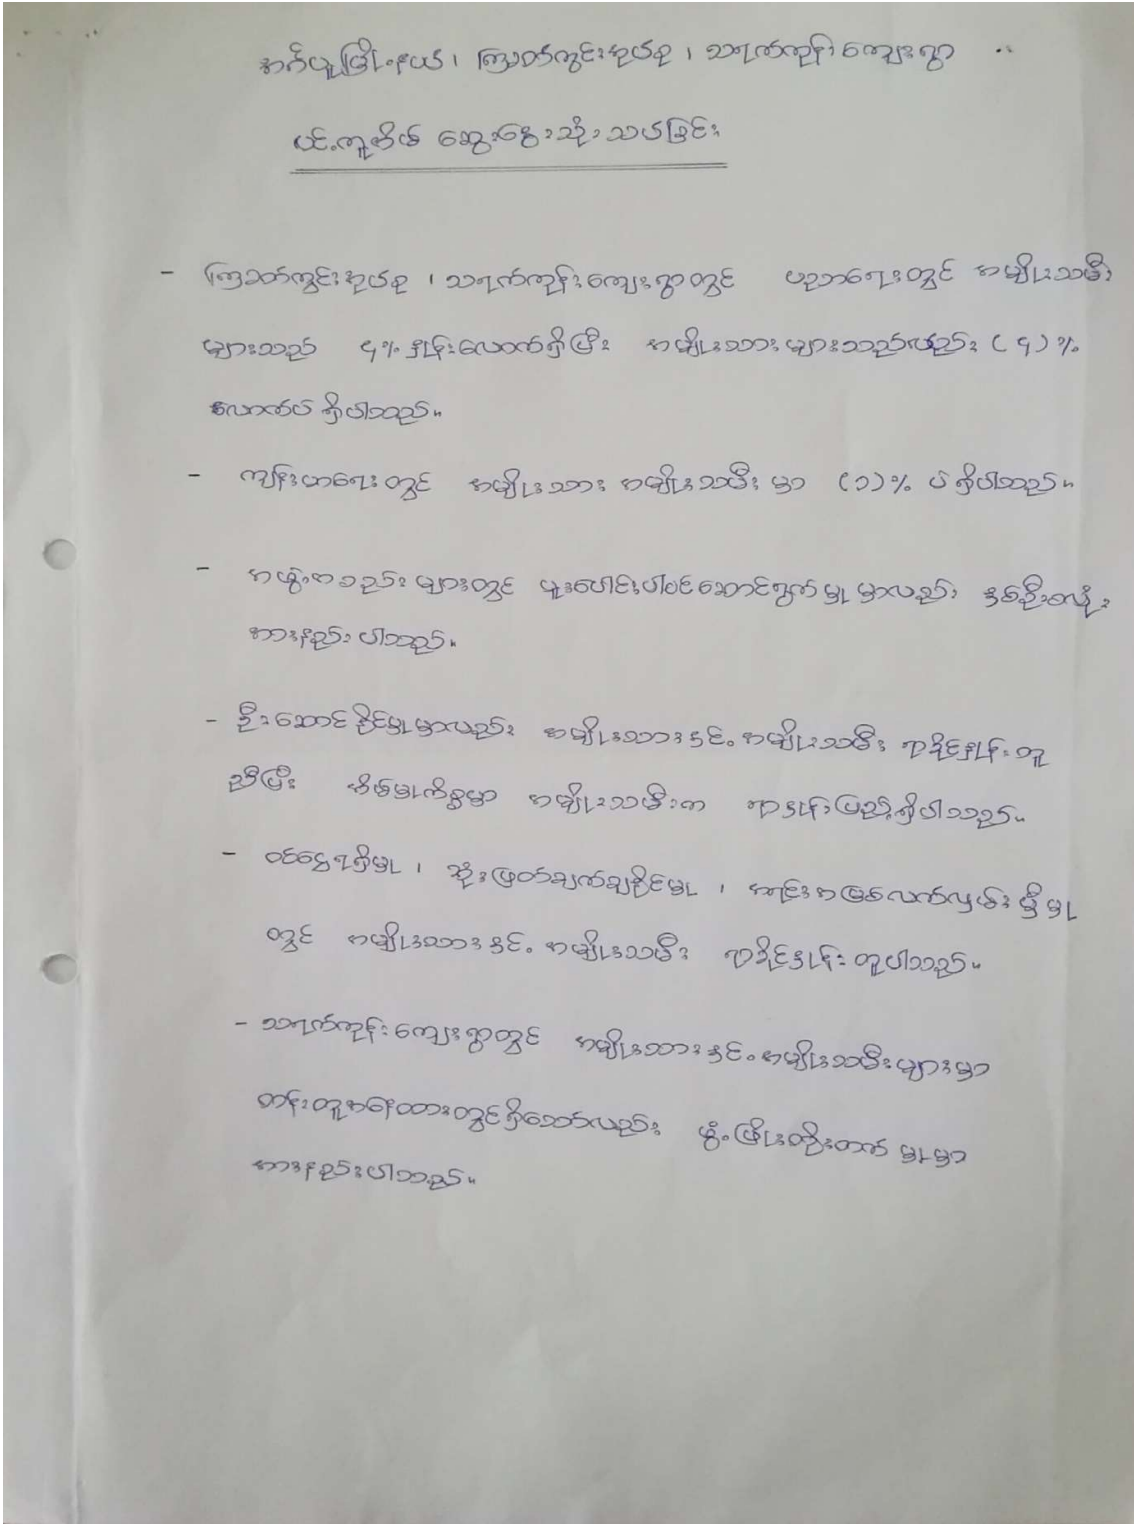 အင်္ဂပူမြို့နယ်၊ ကြာတကွင်းအုပ်စု၊ သရက်ကုန်းကျေးရွာ
ပင့်ကူအိမ် ဆွေးနွေးသုံးသပ်ခြင်း
- ကြာတကွင်းအုပ်စု၊ သရက်ကုန်းကျေးရွာတွင် ပညာရေးတွင် အမျိုးသမီး
များသည် ၄% နှုန်းလောက်ရှိပြီး အမျိုးသားများသည်လည်း (၄)%
လောက်ပဲ ရှိပါသည်။
- ကျန်းမာရေးတွင် အမျိုးသား အမျိုးသမီး မှာ (၁)% ပဲ ရှိပါသည်။
- အဖွဲ့အစည်းများတွင် ပူးပေါင်းပါဝင်ဆောင်ရွက်မှု မှာလည်း နှစ်ဦးစလုံး
အားနည်းပါသည်။
- ဦးဆောင်နိုင်မှုမှာလည်း အမျိုးသားနှင့် အမျိုးသမီး ရာခိုင်နှုန်းတူ
ညီပြီး အိမ်မှုကိစ္စမှာ အမျိုးသမီးက ရာနှုန်းပြည့်ရှိပါသည်။
- ဝင်ငွေရရှိမှု၊ ဆုံးဖြတ်ချက်ချနိုင်မှု၊ အရင်းအမြစ်လက်လှမ်းမှီမှု
တွင် အမျိုးသားနှင့် အမျိုးသမီး ရာခိုင်နှုန်းတူပါသည်။
- သရက်ကုန်းကျေးရွာတွင် အမျိုးသားနှင့် အမျိုးသမီးများမှာ
တန်းတူအနေထားတွင်ရှိသော်လည်း ဖွံ့ဖြိုးတိုးတက်မှုမှာ
အားနည်းပါသည်။